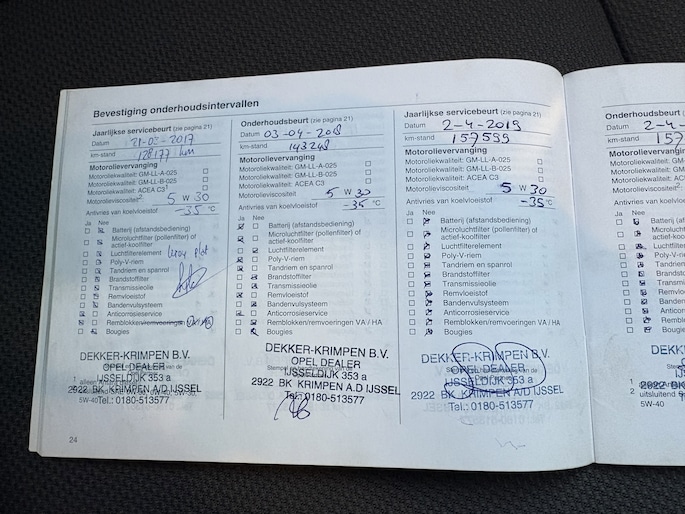 Bevestiging onderhoudsintervallen
Jaarlijkse servicebeurt (zie pagina 21)
Datum
km-stand 128177 km
Motorolievervanging
Motoroliekwaliteit: GM-LL-A-025
Motoroliekwaliteit: GM-LL-B-025
Motoroliekwaliteit: ACEA C3
Motorolieviscositeit 5 W 30
Antivries van koelvloeistof -35 °C
Ja Nee
Batterij (afstandsbediening)
Microluchtfilter (pollenfilter) of
actief-koolfilter
Luchtfilterelement
Poly-V-riem
Tandriem en spanrol
Brandstoffilter
Transmissieolie
Remvloeistof
Bandenvulsysteem
Anticorrosieservice
Remblokken/remvoeringen VA/HA
Bougies
DEKKER-KRIMPEN B.V.
OPEL DEALER
IJSSELDIJK 353 a
2922 BK KRIMPEN A/D IJSSEL
Tel.: 0180-513577
5W-40
24
Onderhoudsbeurt (zie pagina 21)
Datum 03-04-2018
km-stand 143248
Motorolievervanging
Motoroliekwaliteit: GM-LL-A-025
Motoroliekwaliteit: GM-LL-B-025
Motoroliekwaliteit: ACEA C3
Motorolieviscositeit 5 W 30
Antivries van koelvloeistof -35 °C
Ja Nee
Batterij (afstandsbediening)
Microluchtfilter (pollenfilter) of
actief-koolfilter
Luchtfilterelement
Poly-V-riem
Tandriem en spanrol
Brandstoffilter
Transmissieolie
Remvloeistof
Bandenvulsysteem
Anticorrosieservice
Remblokken/remvoeringen VA / HA
Bougies
DEKKER-KRIMPEN B.V.
OPEL DEALER
IJSSELDIJK 353 a
2922 BK KRIMPEN A.D IJSSEL
Tel.: 0180-513577
Jaarlijkse servicebeurt (zie pagina 21)
Datum 2-4-2019
km-stand 157599
Motorolievervanging
Motoroliekwaliteit: GM-LL-A-025
Motoroliekwaliteit: GM-LL-B-025
Motoroliekwaliteit: ACEA C3
Motorolieviscositeit 5 W 30
Antivries van koelvloeistof -35 °C
Ja Nee
Batterij (afstandsbediening)
Microluchtfilter (pollenfilter) of
actief-koolfilter
Luchtfilterelement
Poly-V-riem
Tandriem en spanrol
Brandstoffilter
Transmissieolie
Remvloeistof
Bandenvulsysteem
Anticorrosieservice
Remblokken/remvoeringen VA / HA
Bougies
DEKKER-KRIMPEN B.V.
OPEL DEALER
IJSSELDIJK 353 a
2922 BK KRIMPEN A/D IJSSEL
Tel.: 0180-513577
Onderhoudsbeurt (zie pagina
Datum 2-4-
km-stand 157
Motorolievervanging
Motoroliekwaliteit: GM-
Motoroliekwaliteit: GM-
Motoroliekwaliteit: ACE
Motorolieviscositeit
Antivries van koelvloeis
Ja Nee
Batterij (a
Microluch
actief-koo
Luchtfilte
Poly-V-rie
Tandriem
Brandstof
Transmis
Remvloei
Bandenv
Anticorro
Remblok
Bougies
DEKK
5W-40